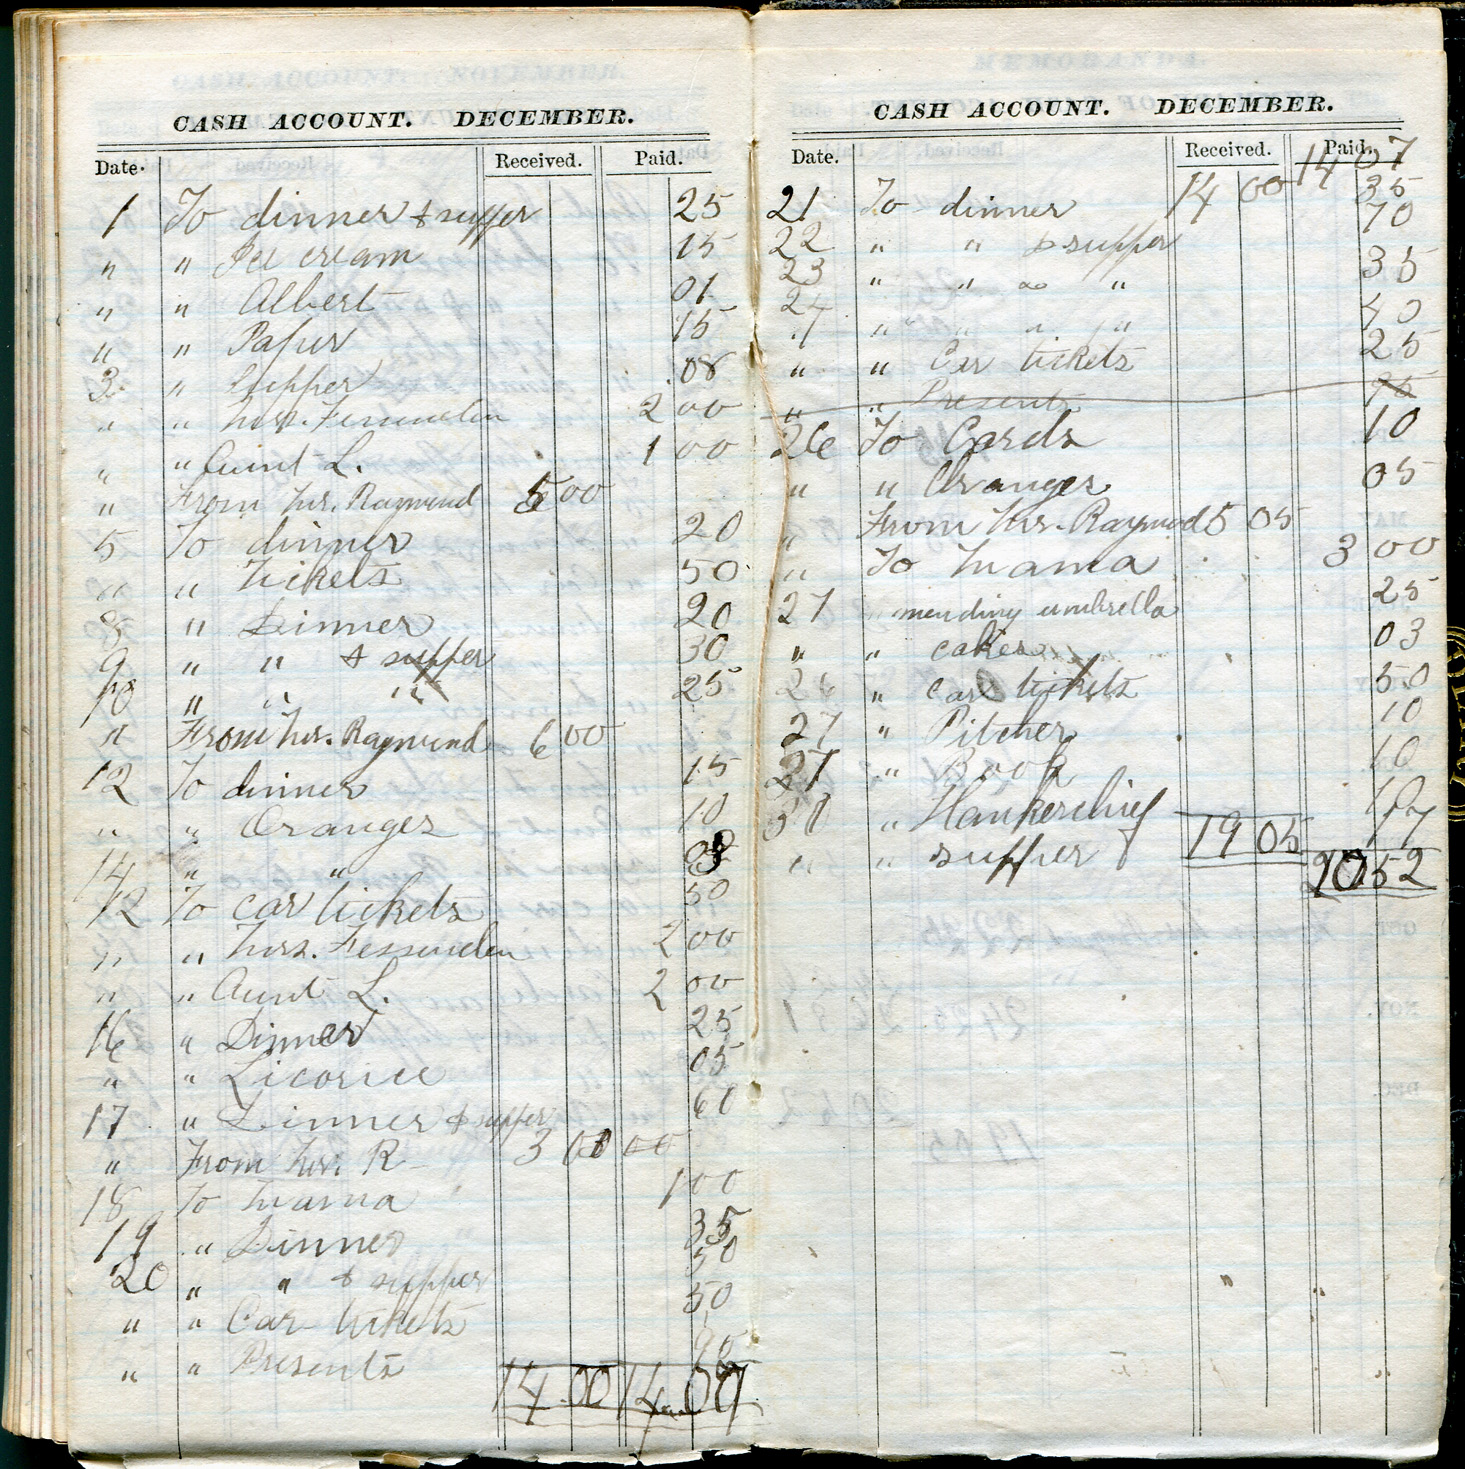 CASH ACCOUNT. DECEMBER.
Date. Received. Paid.
1 To dinner & supper 25
" " Ice cream 15
" " Albert 01
" " Paper 15
3 " Supper .08
" " Mrs. Fessenden 2 00
" " Aunt L. 1 00
" From Mr. Raymond 5 00
5 To dinner 20
" " tickets 50
8 " Dinner 20
9 " " & supper 30
10 " " " 25
" From Mr. Raymond 6 00
12 To dinner 15
" " Oranges 10
14 " "
12 To car tickets 50
" " Mrs. Fessenden 2 00
" " Aunt L. 2 00
16 " Dinner 25
" " Licorice 05
17 " Dinner & supper 60
" From Mr. R 3 00 00
18 To Mama 1 00
19 " Dinner 35
20 " " & supper 50
" " Car tickets 50
" " Presents
14 00 14.07
CASH ACCOUNT. DECEMBER.
Date. Received. Paid.
14 07
21 To dinner 14 00 35
22 " " & supper 70
23 " " & " 35
24 " " " " 40
" " Car tickets 25
" " Presents 95
26 To Cards 10
" " Oranges 05
" From Mr. Raymond 5 05
" To Mama 3 00
27 mending umbrella 25
" " cakes 03
26 " car tickets 50
27 " Pitcher 10
27 " Book 10
31 " Hankerchief 10
" " supper 17
19 05
20 52